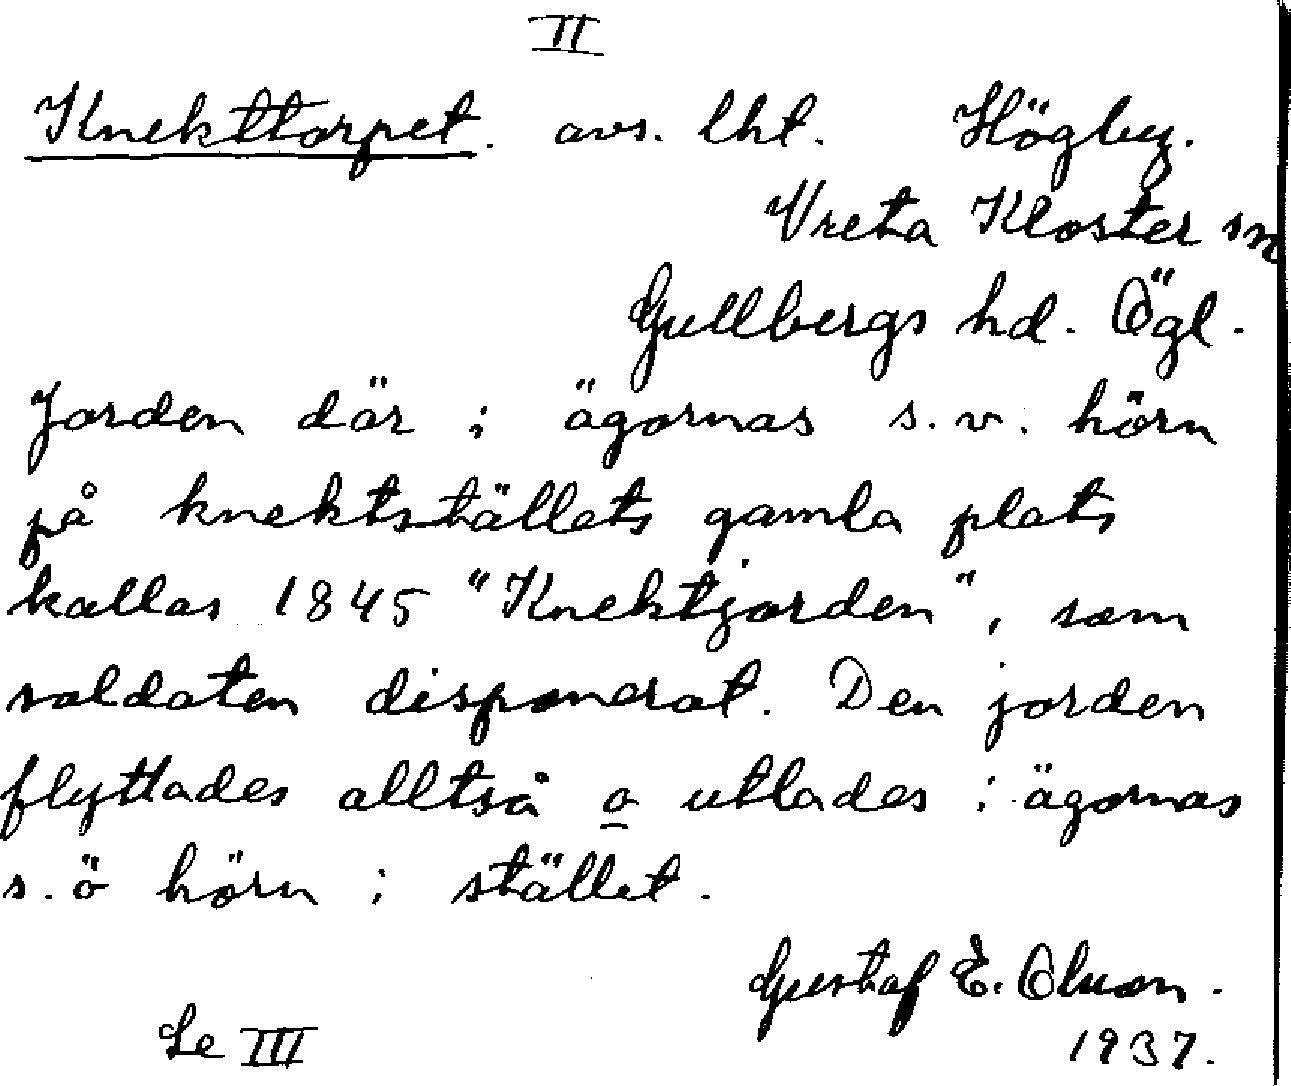 II
Knekttorpet. avs. lht. Högby.
Vreta Kloster sn
Gullbergs hd. Ögl.
Jorden där i ägornas s.v. hörn
på knektställets gamla plats
kallas 1845 "Knektjorden", som
soldaten disponerat. Den jorden
flyttades alltså o utlades i ägornas
s.ö hörn i stället.
Gustaf E. Olson.
Se III 1937.